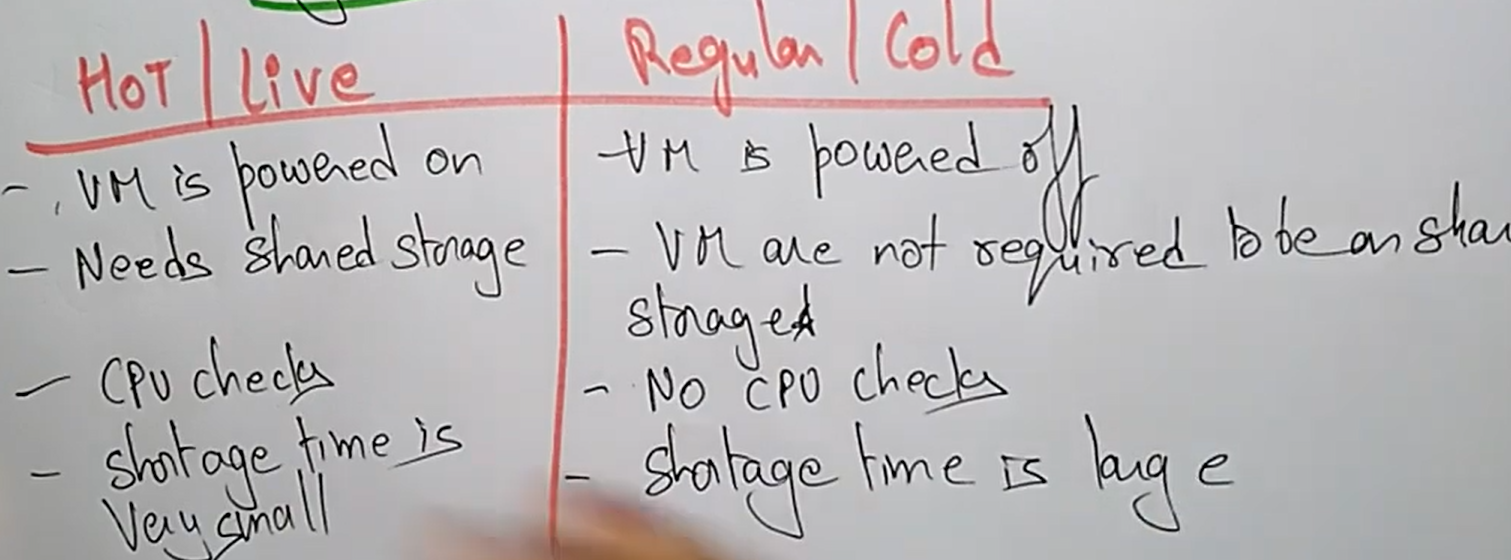 HOT / Live
Regular / Cold
- VM is powered on
- VM is powered off
- Needs shared storage
- VM are not required to be on shar
storaged
- CPU checks
- No CPU checks
- shortage time is
very small
- shortage time is large